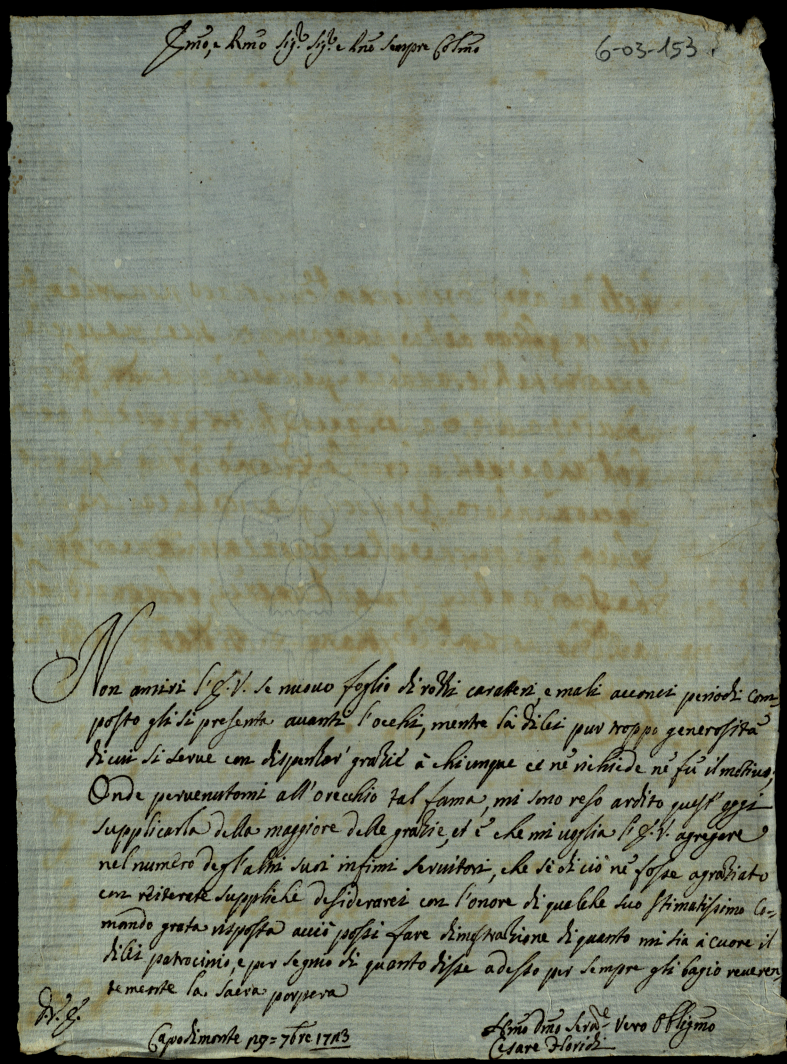 Emo, e Rmo Sigr. Sigr. e Pne Sempre Colmo
6-03-153
Non amiri l'E.V. se nuovo foglio di rotti caratteri e mali acconci periodi com=
posto gli si presenta avanti l'occhi, mentre la dilei pur troppo generosità
di cui si serve con dispenzar' grazie à chiunque ce nè richiede nè fù il motivo;
Onde pervenutomi all'orecchio tal fama, mi sono reso ardito quest'oggi
supplicarla della maggiore delle grazie, et è che mi voglia l'E.V. agregare
nel numero degl'altri suoi infimi servitori, che se di ciò nè fosse agraziato
con reiterate suppliche desiderarei con l'onore di qualche suo stimatissimo Co=
mando grata risposta acciò possi fare dimostrazione di quanto mi sia à cuore il
dilei patrocinio, e per segno di quanto disse adesso per sempre gli bagio reveren=
temente la sacra porpera
D.V.E.
Capodimonte p9= 7bre 1713
Humo Dmo Serve Vero Obligmo
Cesare Floridi